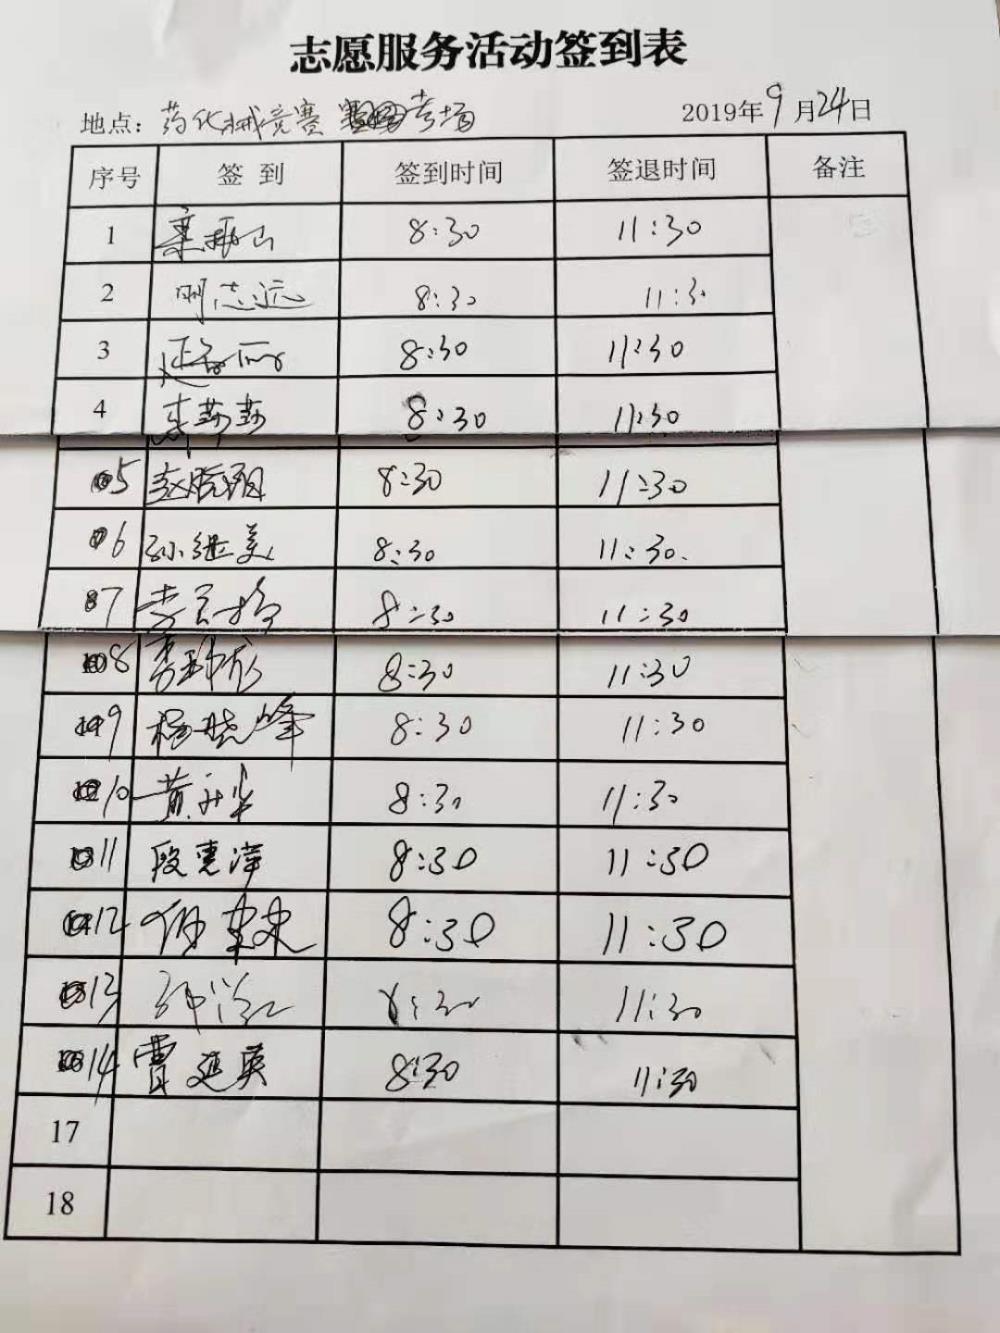 志愿服务活动签到表
地点: 药化械竞赛 考场 2019年9月24日
序号 签 到 签到时间 签退时间 备注
1 8:30 11:30
2 明芯远 8:30 11:30
3 8:30 11:30
4 莎莎 8:30 11:30
5 赵 8:30 11:30
6 孙继美 8:30 11:30.
7 8:30 11:30
8 8:30 11:30
9 杨晓峰 8:30 11:30
10 黄 8:30 11:30
11 段惠萍 8:30 11:30
12 8:30 11:30
13 8:30 11:30
14 曹延英 8:30 11:30
17
18